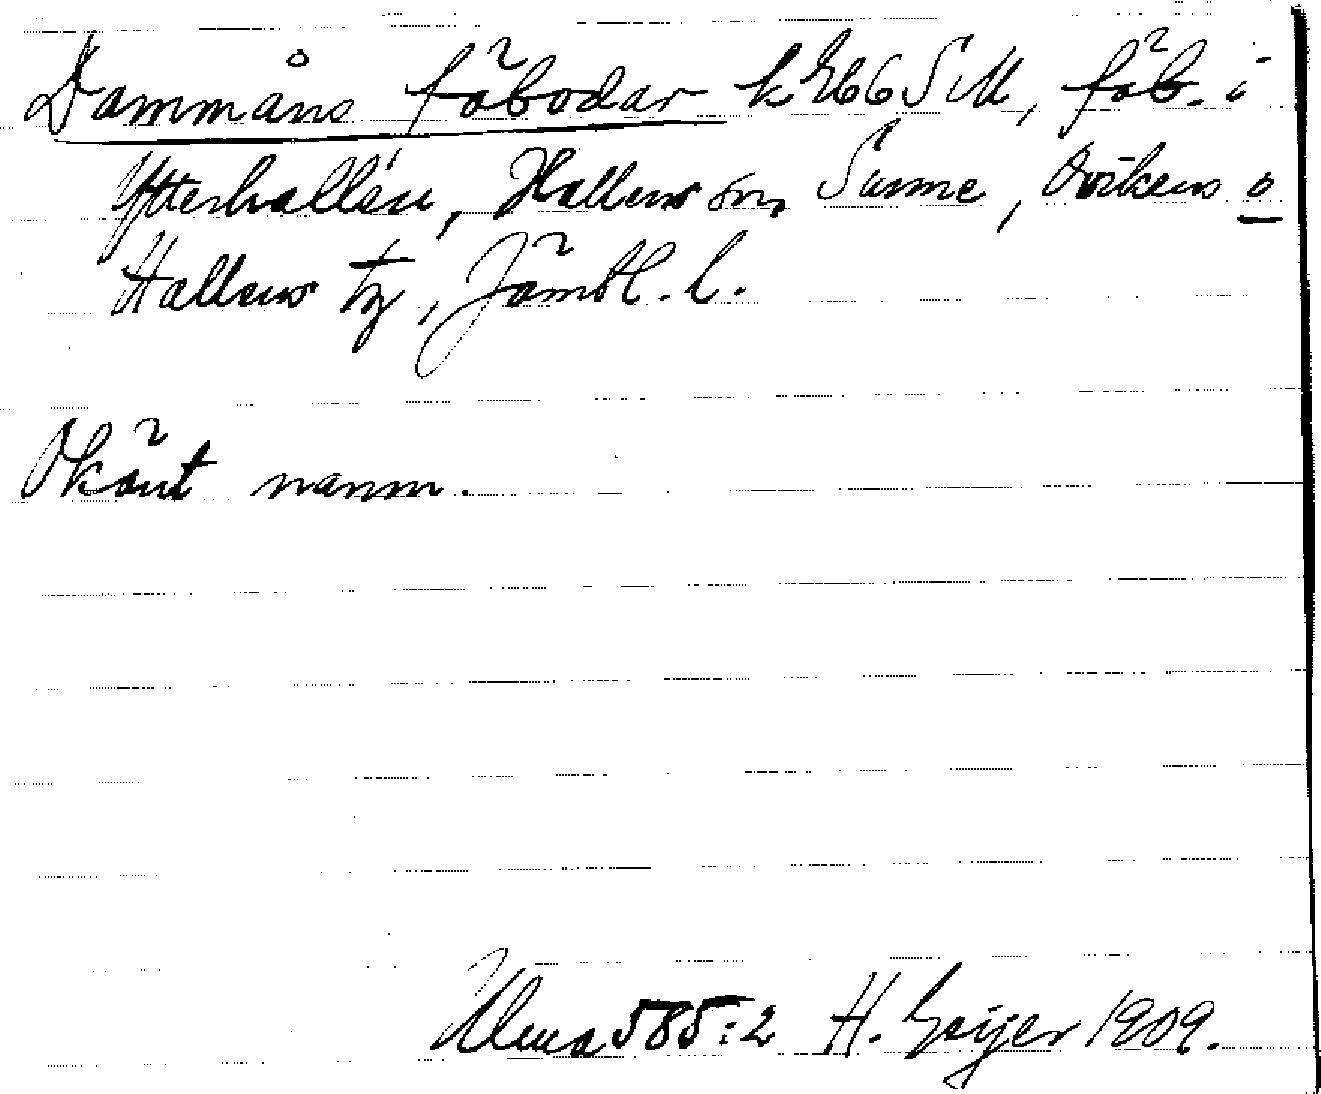 Dammåns fäbodar k 266 SM, fäb. i
Ytterhallen, Hallens sn, Sunne, Ovikens o
Hallens tg, Jämtl. l.
Okänt namn.
Ulma 585:2 H. Geijer 1909.